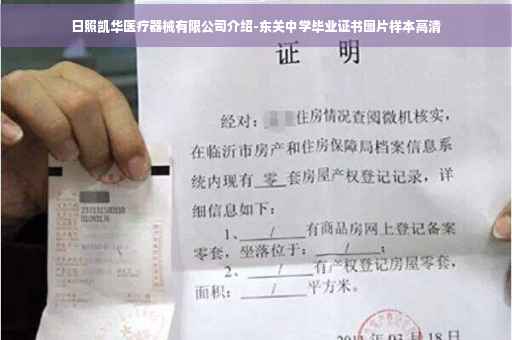 日照凯华医疗器械有限公司介绍-东关中学毕业证书图片样本高清
证 明
经对：住房情况查阅微机核实，
在临沂市房产和住房保障局档案信息系
统内现有 零 套房屋产权登记记录，详
细信息如下：
1、 / 有商品房网上登记备案
零套，坐落位于： / ；
2、 / 有产权登记房屋零套，
面积： / 平方米。
03 月 18 日